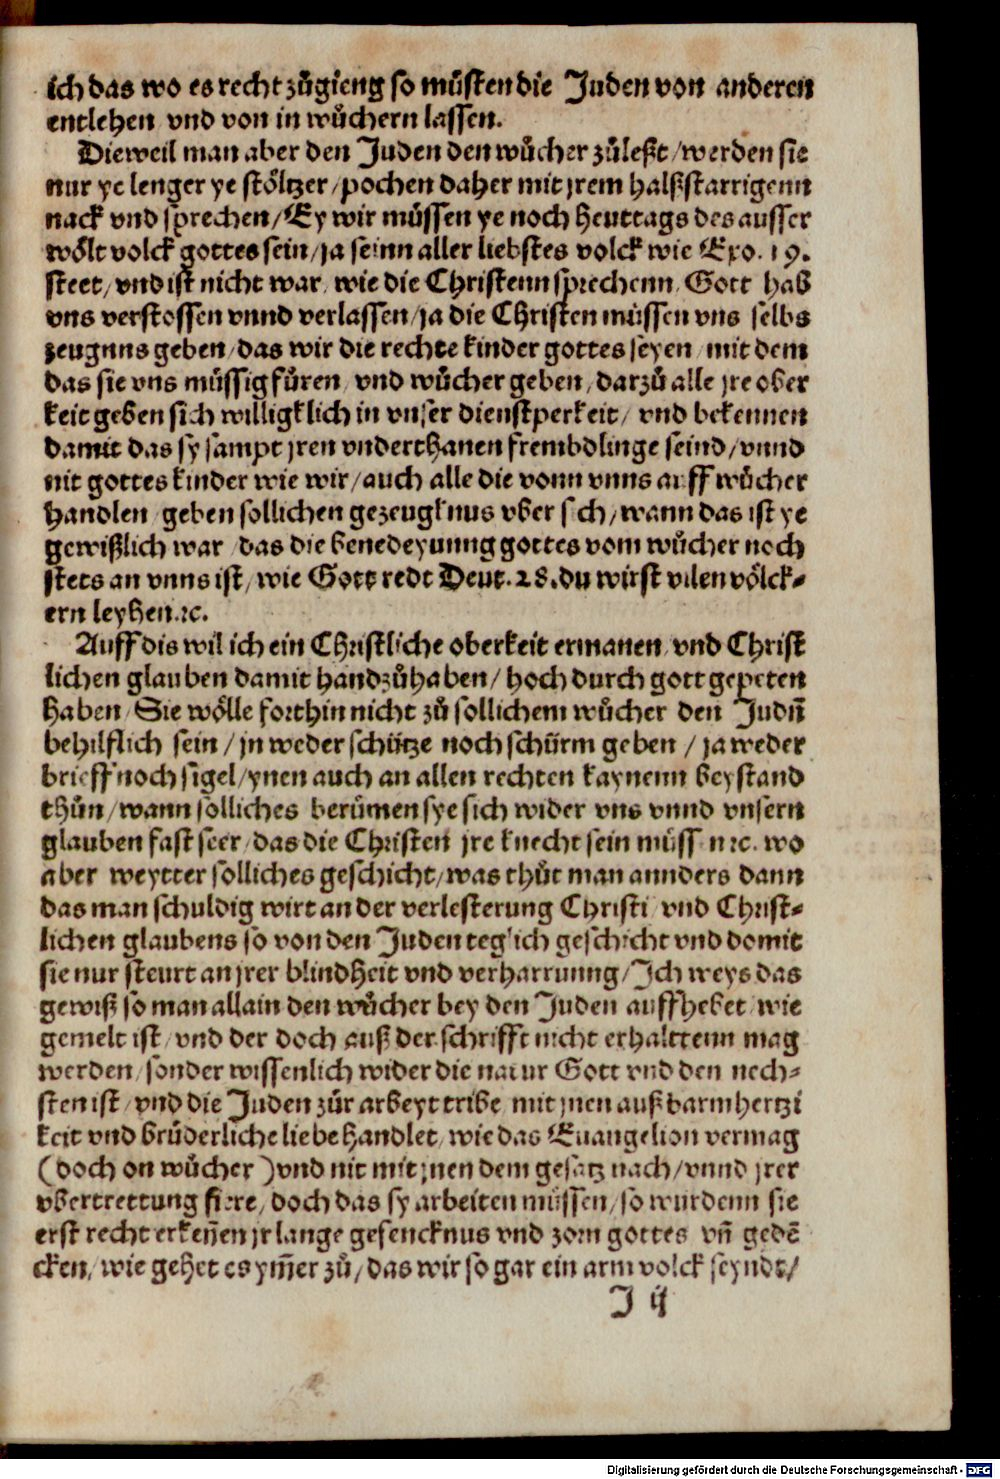 ich das wo es recht zůgieng so můsten die Juden von anderen
entlehen vnd von in wůchern lassen.
Dieweil man aber den Juden den wůcher zůleßt/werden sie
nur ye lenger ye stöltzer/pochen daher mit jrem halßstarrigenn
nack vnd sprechen/Ey wir müssen ye noch heuttags des ausser
wölt volck gottes sein/ja seinn aller liebstes volck wie Exo. 19.
steet/vnd ist nicht war/wie die Christenn sprechenn/Gott hab
vns verstossen vnnd verlassen/ja die Christen müssen vns selbs
zeugnns geben/das wir die rechte kinder gottes seyen/mit dem
das sie vns müssig fůren/vnd wůcher geben/darzů alle jre ober
keit geben sich willigklich in vnser dienstperkeit/vnd bekennen
damit das sy sampt jren vnderthanen frembdlinge seind/vnnd
nit gottes kinder wie wir/auch alle die vonn vnns auff wůcher
handlen/geben sollichen gezeugknus vber sich/wann das ist ye
gewißlich war/das die benedeyunng gottes vom wůcher noch
stets an vnns ist/wie Gott redt Deut. 28. du wirst vilen völck-
ern leyhen.⁊c.
Auff dis wil ich ein Christliche oberkeit ermanen/vnd Christ
lichen glauben damit handzůhaben/hoch durch gott gepeten
haben/Sie wölle forthin nicht zů sollichem wůcher den Judn̄
behilflich sein/jn weder schütze noch schürm geben/ja weder
brieff noch sigel/ynen auch an allen rechten kaynenn beystand
thůn/wann solliches berůmen sye sich wider vns vnnd vnsern
glauben fast seer/das die Christen jre knecht sein müssn⁊c. wo
aber weytter solliches geschicht/was thůt man annders dann
das man schuldig wirt an der verlesterung Christi vnd Christ-
lichen glaubens so von den Juden teglich geschicht vnd domit
sie nur steurt an jrer blindheit vnd verharrunng/Ich weys das
gewiß so man allain den wůcher bey den Juden auffhebet/wie
gemelt ist/vnd der doch auß der schrifft nicht erhalttenn mag
werden/sonder wissenlich wider die natur Gott vnd den nech-
sten ist/vnd die Juden zůr arbeyt tribe mit jnen auß barmhertzi
keit vnd brüderliche liebe handlet/wie das Euangelion vermag
(doch on wůcher)vnd nit mit jnen dem gesatz nach/vnnd jrer
vbertrettung fiere/doch das sy arbeiten müssen/so wurdenn sie
erst recht erkeñen jr lange gefencknus vnd zorn gottes vn̄ gedē
cken/wie gehet es ym̄er zů/das wir so gar ein arm volck seyndt/
J ij
Digitalisierung gefördert durch die Deutsche Forschungsgemeinschaft - DFG